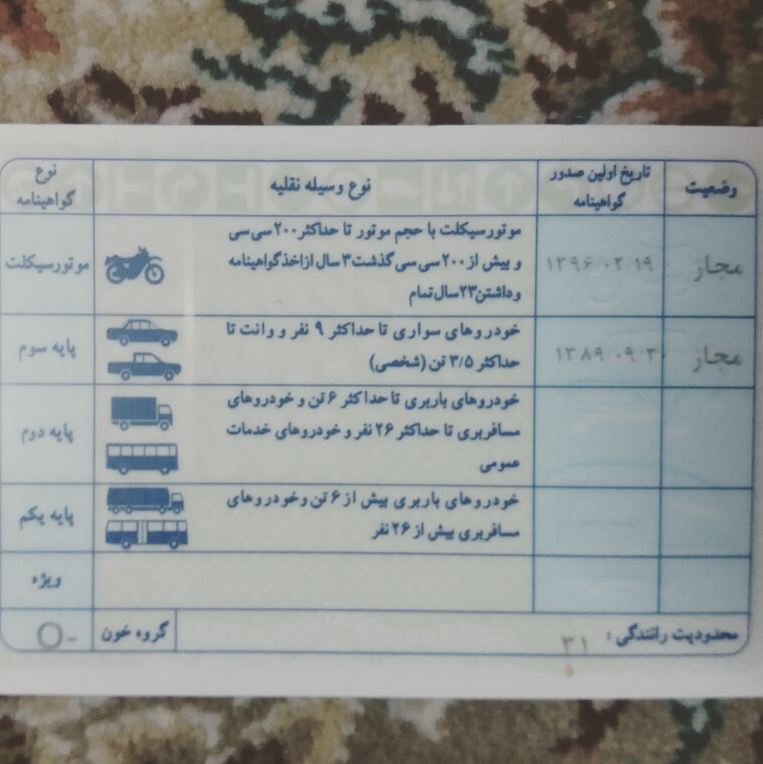 وضعیت
تاریخ اولین صدور
گواهینامه
نوع وسیله نقلیه
نوع
گواهینامه
مجاز
۱۳۹۶ ۰۲ ۱۹
موتورسیکلت با حجم موتور تا حداکثر ۲۰۰ سی سی
و بیش از ۲۰۰ سی سی گذشت ۳ سال از اخذ گواهینامه
و داشتن ۲۳ سال تمام
موتورسیکلت
مجاز
۱۳۸۹ ۰۹
خودروهای سواری تا حداکثر ۹ نفر و وانت تا
حداکثر ۳/۵ تن (شخصی)
پایه سوم
خودروهای باربری تا حداکثر ۶ تن و خودروهای
مسافربری تا حداکثر ۲۶ نفر و خودروهای خدمات
عمومی
پایه دوم
خودروهای باربری بیش از ۶ تن و خودروهای
مسافربری بیش از ۲۶ نفر
پایه یکم
ویژه
محدودیت رانندگی : ۳۱
گروه خون
O-